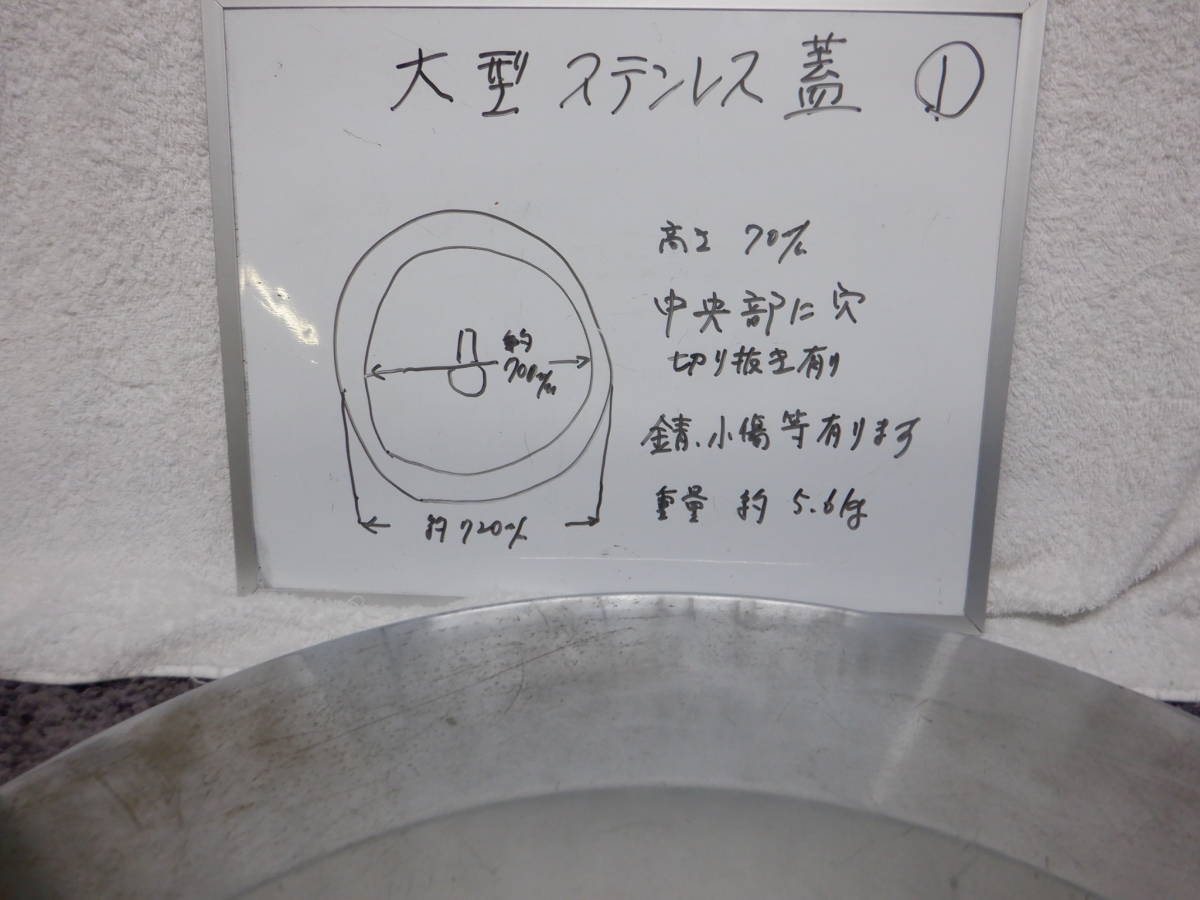 大型ステンレス蓋 ①
高さ 70㎜
中央部に穴
切り抜き有り
約
700㎜
錆、小傷等有ります
重量 約 5.6kg
約720㎜